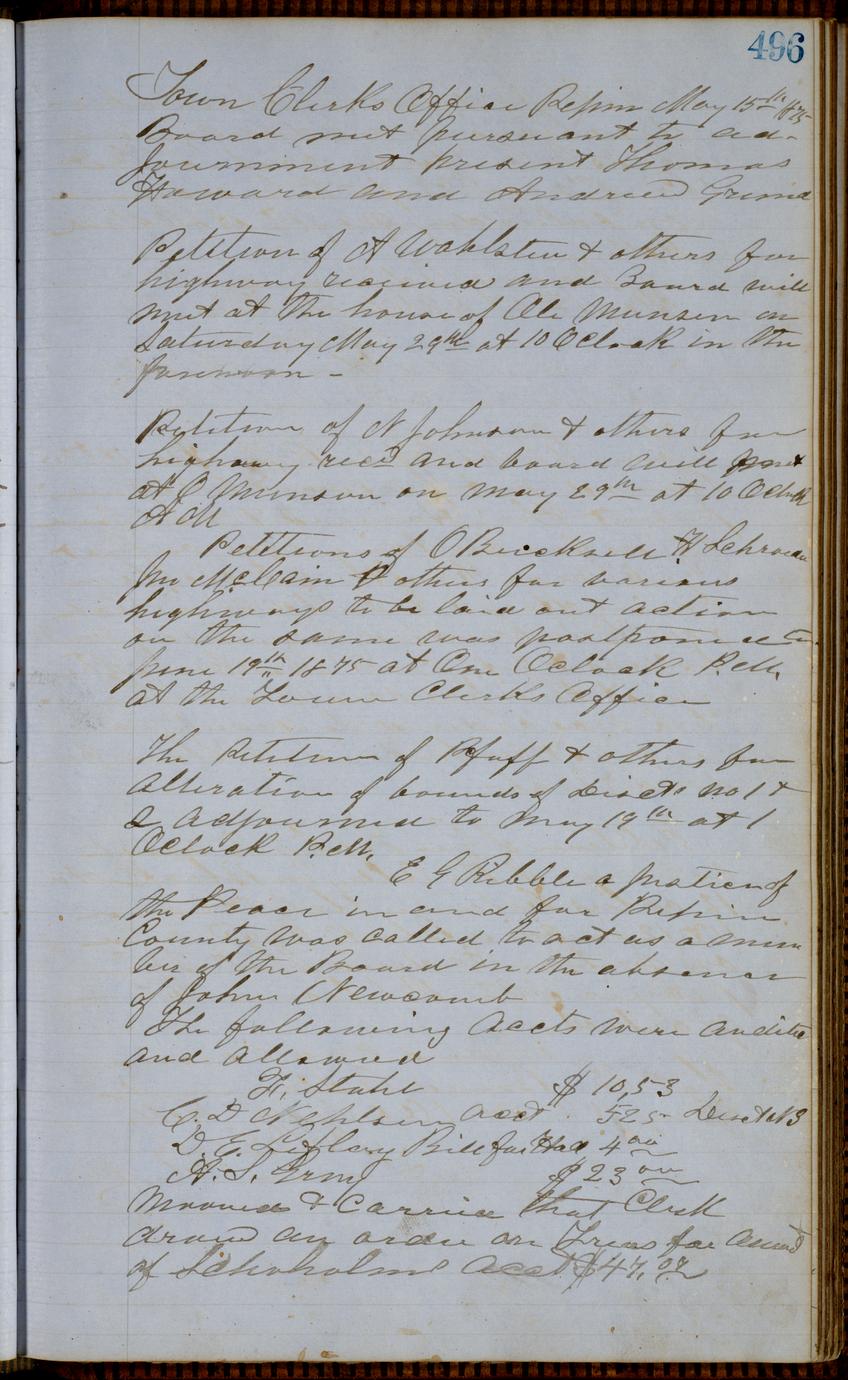 496
Town Clerks Office Pepin May 15th 1875
Board met pursuant to ad-
journment present Thomas
Howard and Andrew
Petition of A Wahlsten & others for
highway received and Board will
met at the house of Ole Munson on
Saturday May 29th at 10 Oclock in the
forenoon -
Petition of N Johnson & others for
highway recd and board will met
at O Munson on May 29th at 10 Oclock
AM
Petitions of O H
Jno McClain & others for various
highways to be laid out action
on the same was postponed to
June 19th 1875 at One Oclock P.M.
at the Town Clerks Office
The Petition of Pfaff & others for
alteration of bounds of Disct No 1 &
2 adjourned to May 19th at 1
Oclock P.M.
E G Ribble a Justice of
the Peace in and for Pepin
County was called to act as a mem
ber of the Board in the absence
of John Newcomb
The following accts were audited
and allowed
F. Stahl $10,53
C. D acct 525 Disct N3
D. E. Bill for 4 00
A. S. $23 00
Mooved & Carried that Clerk
draw an order on Treas for amount
of acct $47,